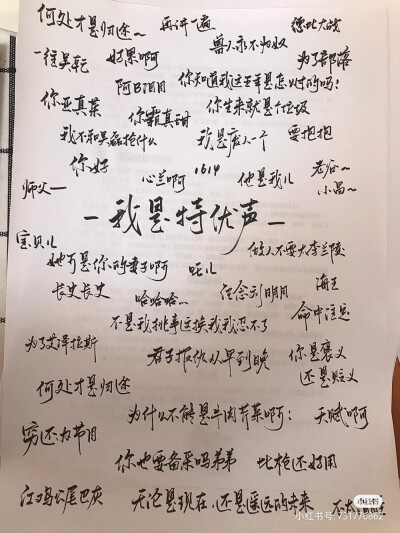 何处才是归途～ 再讲一遍 德比大战
一往吴乾 好累啊 兽人永不为奴 为了部落
阿B明月 你知道我这五年是怎么过的吗！
你亚真菜 你霸真甜 你生来就是垃圾
我不和吴磊抢什么 我是废人一个 要抱抱
你好 心兰啊 1614 他是我儿 老谷～
师父— 小昌～
—我是特优声—
宝贝儿 做人不要太李兰陵
她可是你的妻子啊 吒儿 海王
长史长史 哈哈哈… 任念刘明月 命中注定
不是我挑事这换我我忍不了
为了艾泽拉斯 君子报仇从早到晚 你是褒义
还是贬义
何处才是归途
为什么不能是牛肉芹菜啊： 天赋啊
穷还为节目
你也要备采吗弟弟 比枪还好用
江鸡公尾巴灰 无论是现在，还是遥远的未来
小红书
小红书号:751776862